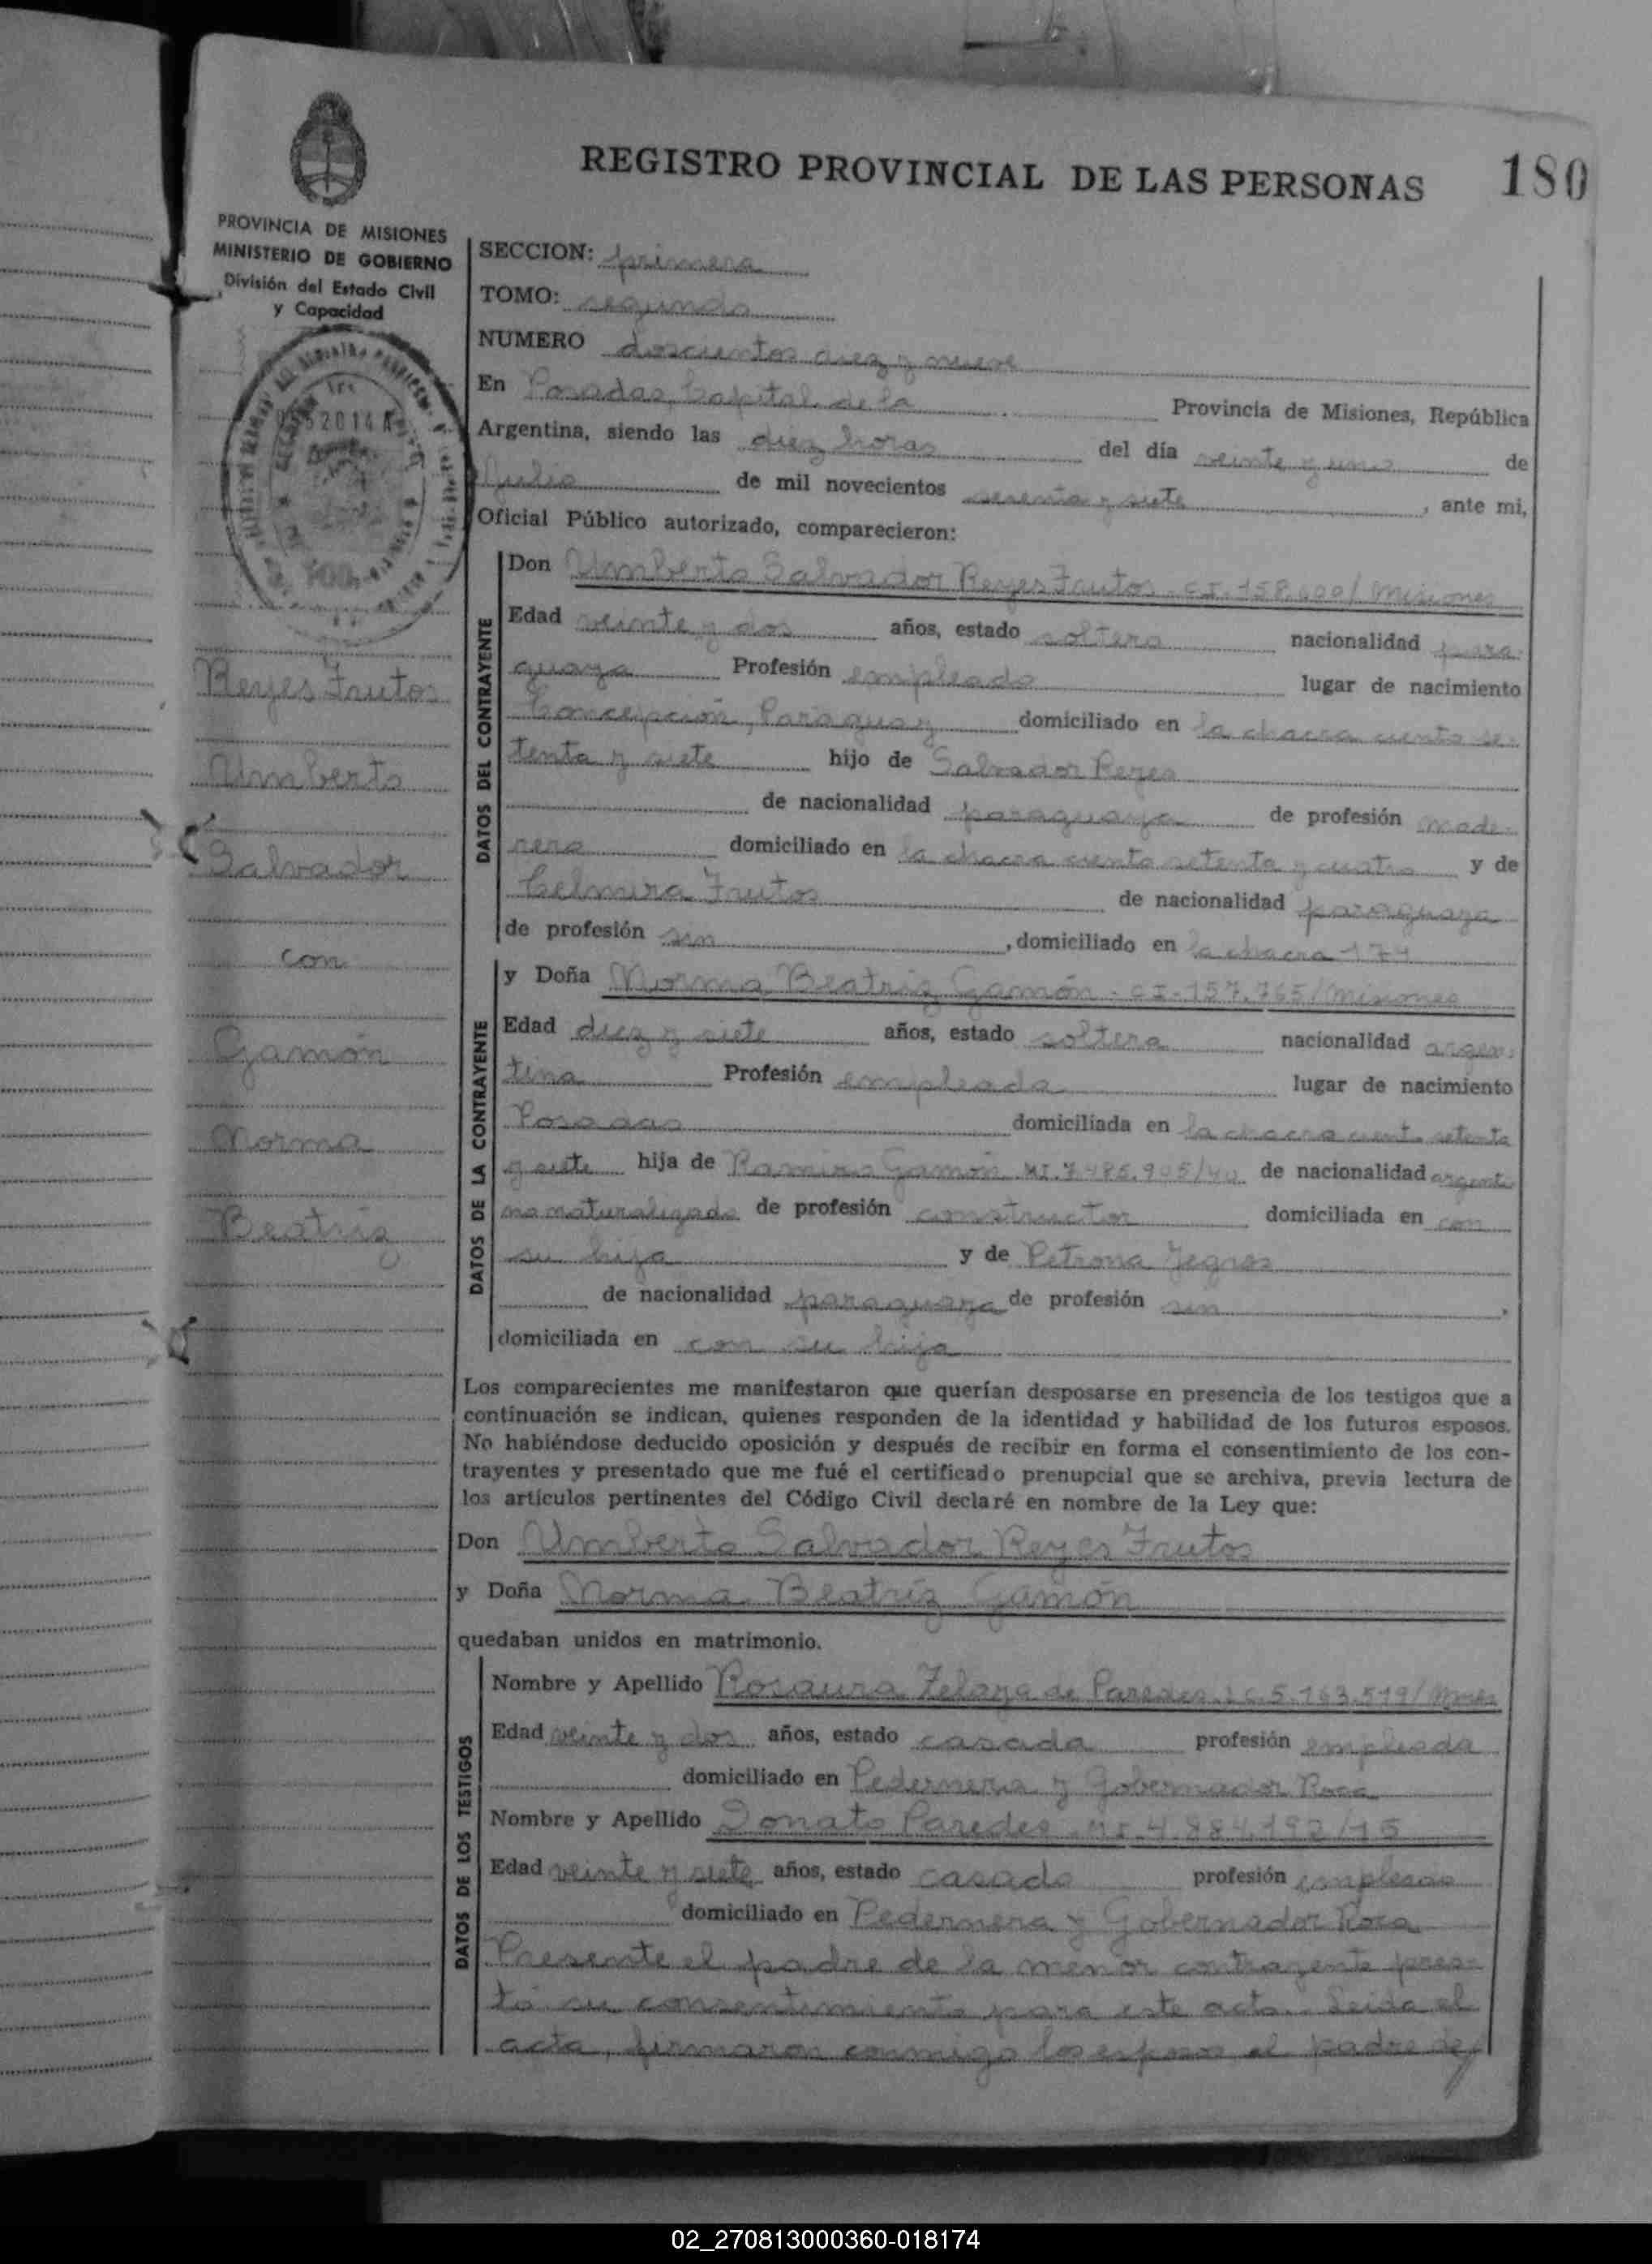 REGISTRO PROVINCIAL DE LAS PERSONAS
180
PROVINCIA DE MISIONES
MINISTERIO DE GOBIERNO
División del Estado Civil
y Capacidad
SECCION: primera
TOMO: segundo
NUMERO doscientos diez y nueve
En Posadas, Capital de la Provincia de Misiones, República
Argentina, siendo las diez horas del día veinte y uno de
Julio de mil novecientos sesenta y siete, ante mi,
Oficial Público autorizado, comparecieron:
Reyes Frutos
Umberto
Salvador
con
Gamón
Norma
Beatriz
DATOS DEL CONTRAYENTE
Don Umberto Salvador Reyes Frutos - CI. 158.600/Misiones
Edad veinte y dos años, estado soltero nacionalidad para-
guaya Profesión empleado lugar de nacimiento
Concepción, Paraguay domiciliado en la chacra ciento se-
tenta y siete hijo de Salvador Reyes
de nacionalidad paraguaya de profesión made-
rero domiciliado en la chacra ciento setenta y cuatro y de
Celmira Frutos de nacionalidad paraguaya
de profesión sin, domiciliado en la chacra 174
DATOS DE LA CONTRAYENTE
y Doña Norma Beatriz Gamón - CI - 157.765/Misiones
Edad diez y siete años, estado soltera nacionalidad argen-
tina Profesión empleada lugar de nacimiento
Posadas domiciliada en la chacra ciento setenta
y siete hija de Ramiro Gamón MI. 7.485.905/40 de nacionalidad argenti
no naturalizado de profesión constructor domiciliada en con
su hija y de Petrona Yegros
de nacionalidad paraguaya de profesión sin,
domiciliada en con su hija
Los comparecientes me manifestaron que querían desposarse en presencia de los testigos que a
continuación se indican, quienes responden de la identidad y habilidad de los futuros esposos.
No habiéndose deducido oposición y después de recibir en forma el consentimiento de los con-
trayentes y presentado que me fué el certificado prenupcial que se archiva, previa lectura de
los artículos pertinentes del Código Civil declaré en nombre de la Ley que:
Don Umberto Salvador Reyes Frutos
y Doña Norma Beatriz Gamón
quedaban unidos en matrimonio.
DATOS DE LOS TESTIGOS
Nombre y Apellido Rosaura Zelaya de Paredes. LC 5.163.519/Mnes
Edad veinte y dos años, estado casada profesión empleada
domiciliado en Pedernera y Gobernador Roca
Nombre y Apellido Donato Paredes. MI. 4.884.192/15
Edad veinte y siete años, estado casado profesión empleado
domiciliado en Pedernera y Gobernador Roca
Presente el padre de la menor contrayente pres-
tó su consentimiento para este acto. Leida el
acta, firmaron conmigo los esposos, el padre de
02_270813000360-018174